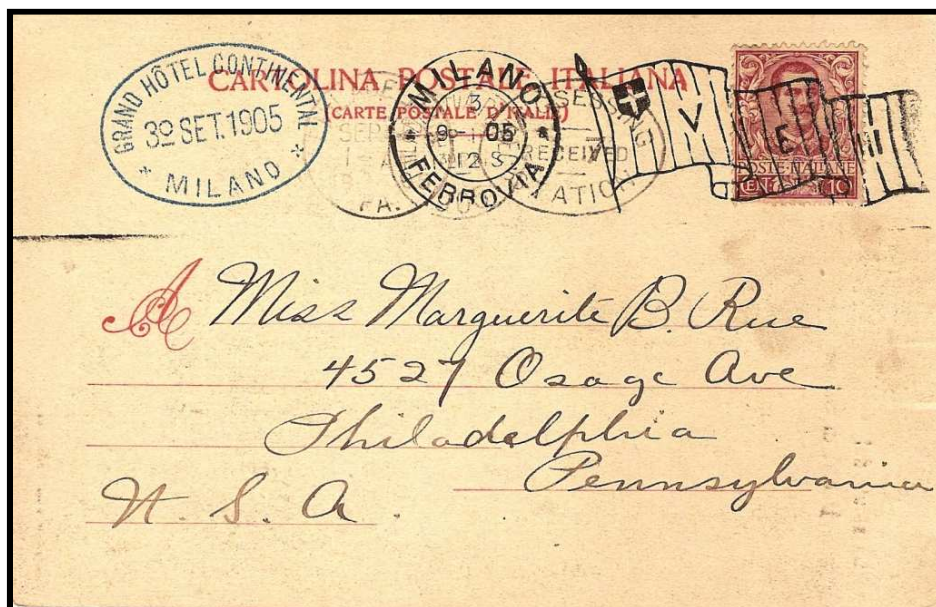 GRAND HÔTEL CONTINENTAL
3º SET.1905
* MILANO *
CARTOLINA POSTALE ITALIANA
(CARTE POSTALE D'ITALIE)
MILANO
3
9 05
12 S
* FERROVIA *
RECEIVED
PA.
POSTE ITALIANE
CENT. 10
A Miss Marguerite B. Rue
4527 Osage Ave
Philadelphia
Pennsylvania
U. S. A.